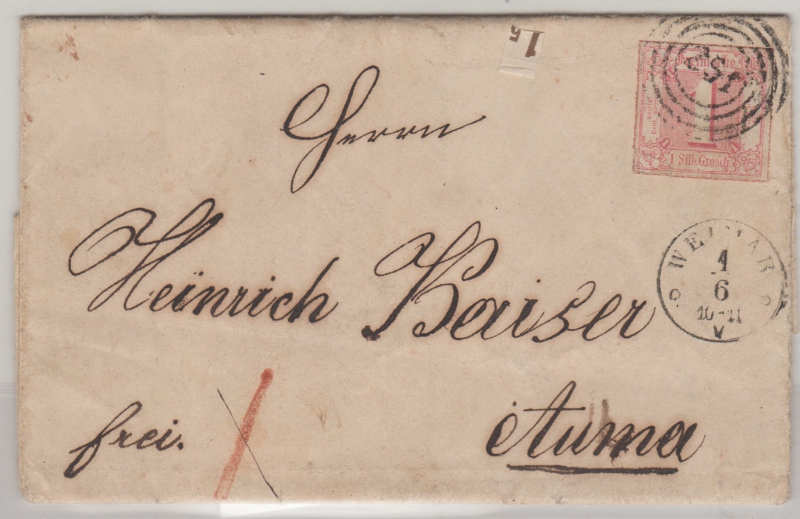 15
1
1 Silb. Grosch.
Herrn
WEIMAR
1
6
10-11
V
Heinrich Kaiser
frei.
Auma